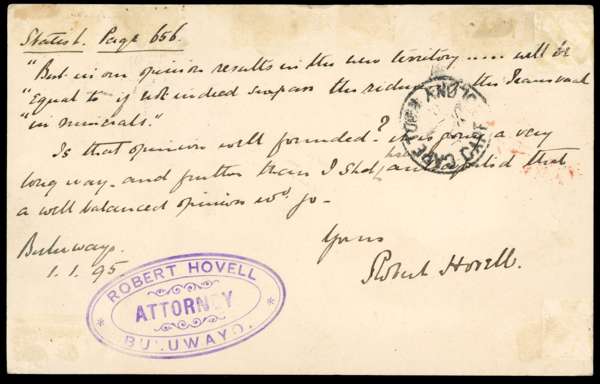 Statist. Page 656.
"But in our opinion results in the new territory ..... will be
"Equal to if not indeed surpass the riches the Transvaal
"in minerals."
Is that opinion well founded? it is going a very
long way and further than I shd. have anticipated that
a well balanced opinion wd. go -
Buluwayo.
1.1.95
Yours
Robert Hovell.
ROBERT HOVELL
ATTORNEY
BULUWAYO.
CAPE TOWN
CAPE COLONY